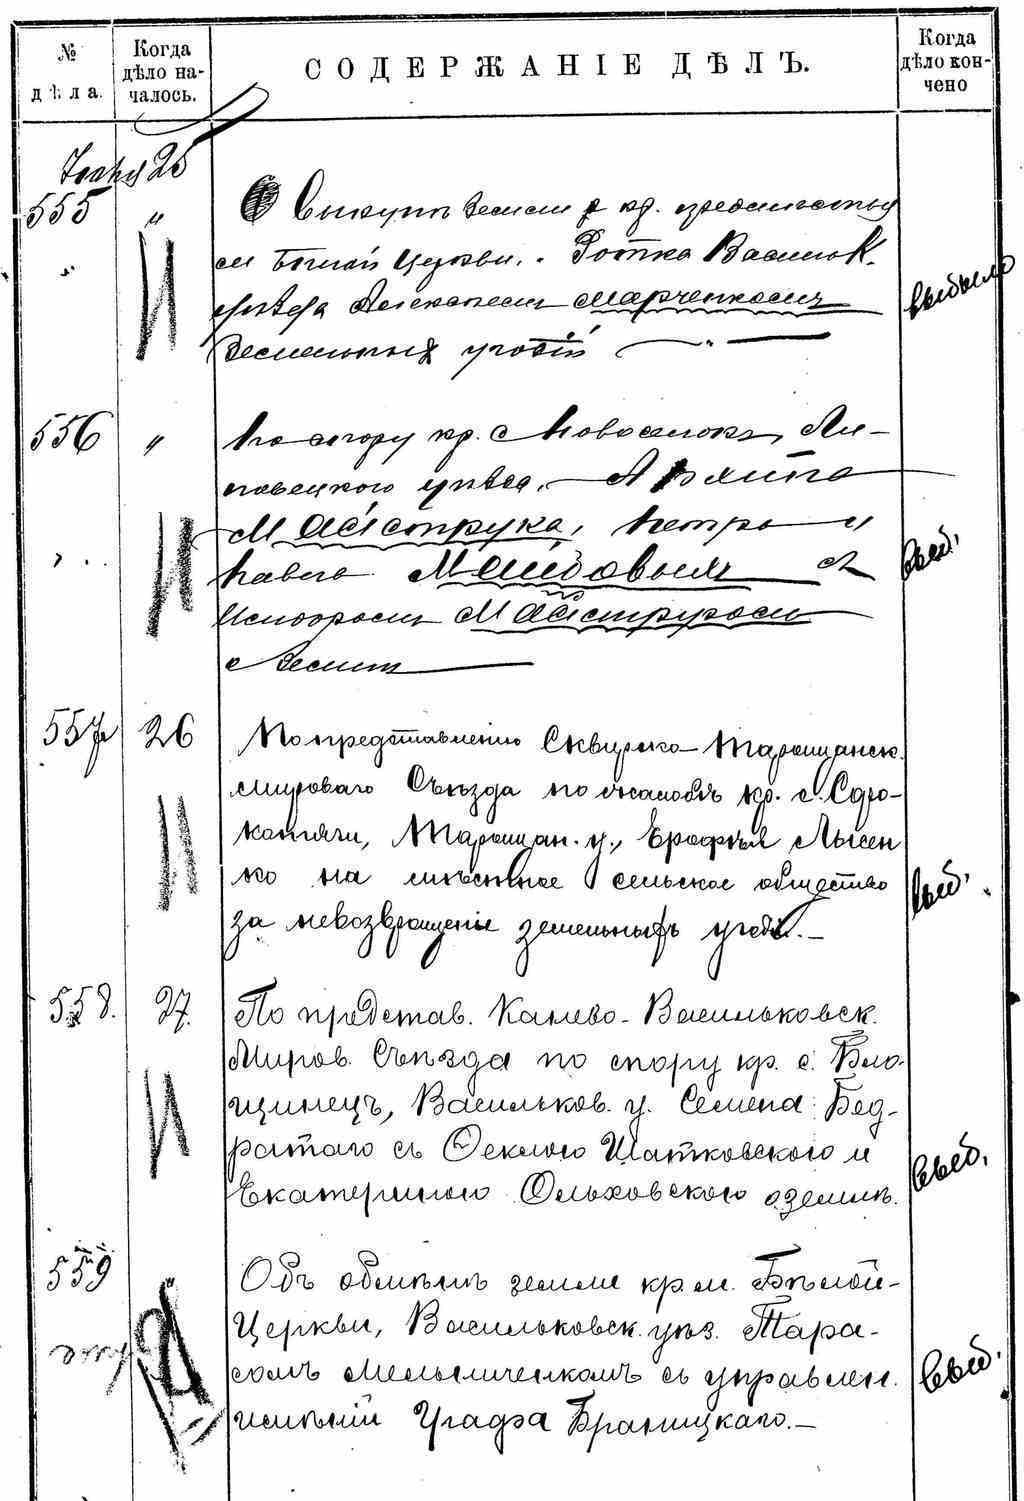 № дѣла.
Когда дѣло началось.
СОДЕРЖАНІЕ ДѢЛЪ.
Когда дѣло кончено
25
555 „
О выкупѣ земли кр.
м. Бѣлой Церкви, Васильк.
уѣзда Марченкомъ
земельныхъ угодій
выбыло
556 „
По спору кр. с. Новоселокъ, Ли-
повецкого уѣзда, Архипа
Майструка, Петра и
Павла съ
Исидоромъ Майструкомъ
о землѣ
выб.
557 26
По представленію Сквирско-Таращанск.
мироваго Съѣзда по жалобѣ кр. с. Соро-
котяги, Таращан. у., Ерофѣя Лысен
ко на мѣстное сельское общество
за невозвращеніе земельныхъ угодій.—
выб.
558. 27.
По представ. Канево-Васильковск.
Миров. Съѣзда по спору кр. с. Бло-
щинецъ, Васильков. у. Семена Бед-
ратаго съ Феклою Шатковскою и
Екатериною Ольховскою о землѣ.
выб.
559 „
Объ обмѣнѣ земли кр. м. Бѣлой-
Церкви, Васильковск. уѣз. Тара-
сомъ Мельниченкомъ съ управлен.
имѣній Графа Браницкаго.—
выб.